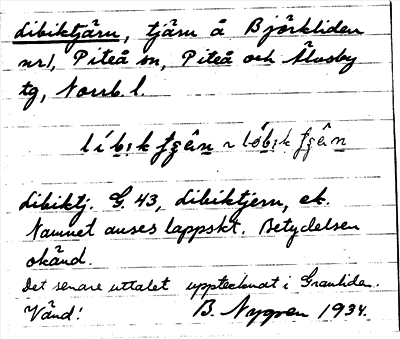 Libiktjärn, tjärn å Björkliden
nr 1, Piteå sn, Piteå och Älvsby
tg, Norrb. l.
Libiktj. G. 43, Libiktjern, ek.
Namnet anses lappskt. Betydelsen
okänd.
Det senare uttalet upptecknat i Granliden.
Vänd! B. Nygren 1934.